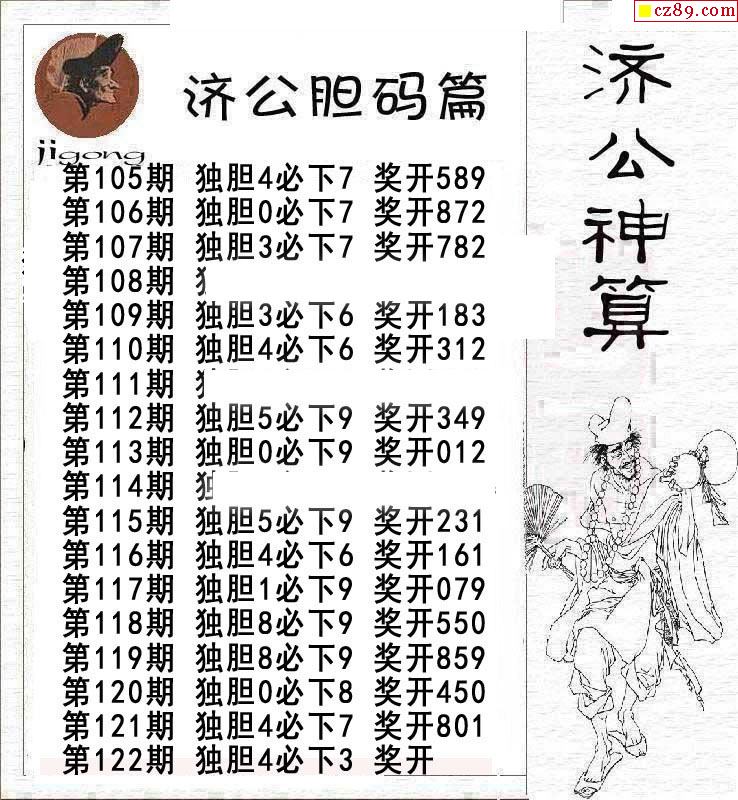 cz89.com
济公胆码篇
jigong
第105期 独胆4必下7 奖开589
第106期 独胆0必下7 奖开872
第107期 独胆3必下7 奖开782
第108期
第109期 独胆3必下6 奖开183
第110期 独胆4必下6 奖开312
第111期
第112期 独胆5必下9 奖开349
第113期 独胆0必下9 奖开012
第114期 独
第115期 独胆5必下9 奖开231
第116期 独胆4必下6 奖开161
第117期 独胆1必下9 奖开079
第118期 独胆8必下9 奖开550
第119期 独胆8必下9 奖开859
第120期 独胆0必下8 奖开450
第121期 独胆4必下7 奖开801
第122期 独胆4必下3 奖开
济公神算